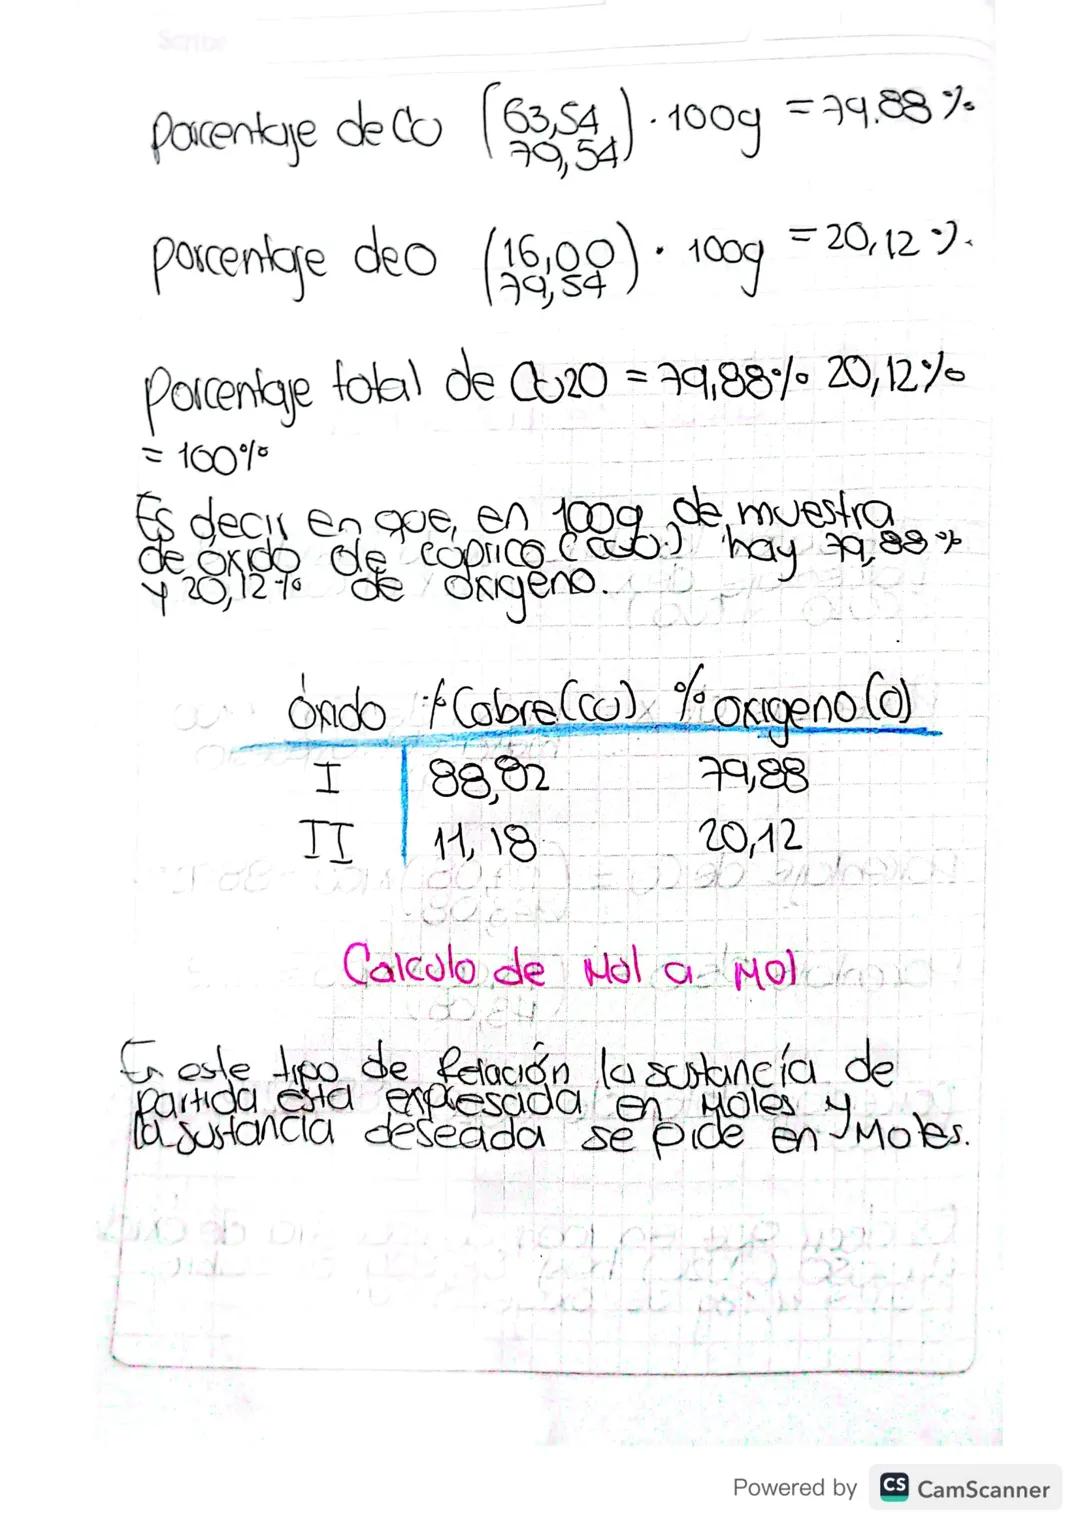 Scribe
porcentaje de Cu (63,54 / 79,54) · 100g = 79.88 %
porcentaje de O (16,00 / 79,54) · 100g = 20,12 %.
porcentaje total de Cu2O = 79,88% 20,12%
= 100%
Es decir en que, en 100g de muestra
de óxido de cúprico (CuO) hay 79,88%
y 20,12% de oxigeno.
óxido % Cobre (Cu) % oxigeno (O)
I 88,82 79,88
II 11,18 20,12
Calculo de Mol a Mol
En este tipo de Relación la sustancía de
partida esta expresada en Moles y
la sustancia deseada se pide en Moles.
Powered by CS CamScanner